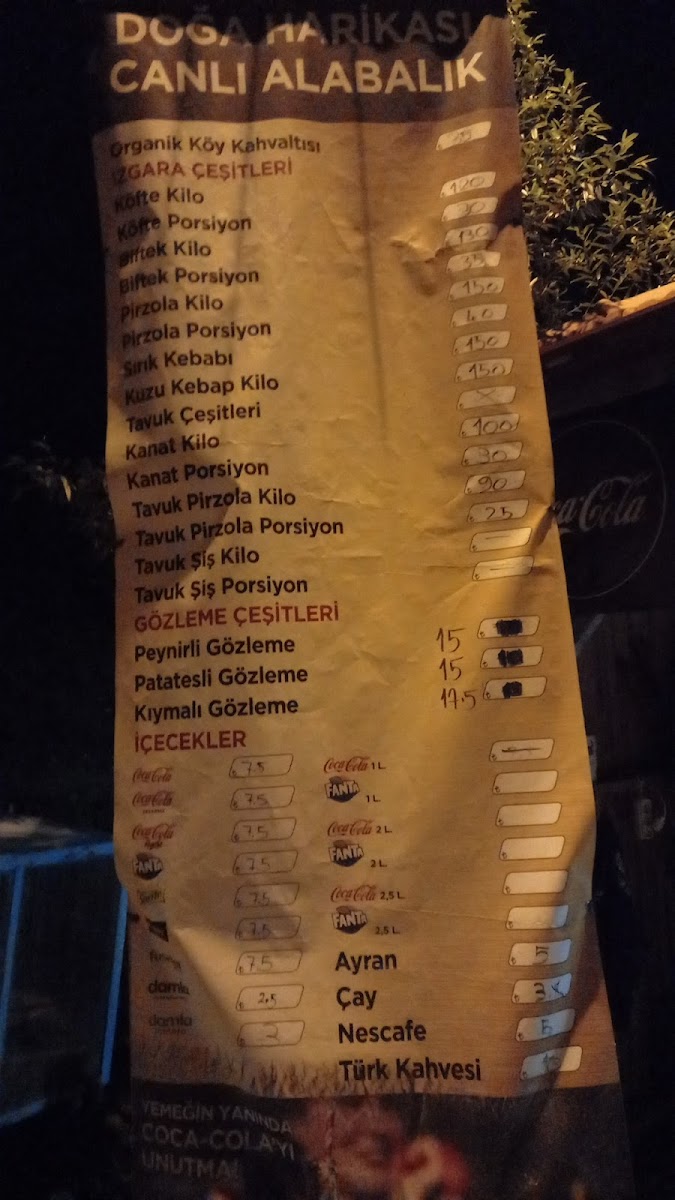 DOĞA HARİKASI
CANLI ALABALIK
Organik Köy Kahvaltısı
IZGARA ÇEŞİTLERİ
Köfte Kilo 120
Köfte Porsiyon
Biftek Kilo 130
Biftek Porsiyon 35
Pirzola Kilo 150
Pirzola Porsiyon 40
Sırık Kebabı 150
Kuzu Kebap Kilo 150
Tavuk Çeşitleri X
Kanat Kilo 100
Kanat Porsiyon 30
Tavuk Pirzola Kilo 90
Tavuk Pirzola Porsiyon 25
Tavuk Şiş Kilo —
Tavuk Şiş Porsiyon —
GÖZLEME ÇEŞİTLERİ
Peynirli Gözleme 15
Patatesli Gözleme 15
Kıymalı Gözleme 17.5
İÇECEKLER
Coca-Cola 7.5 Coca-Cola 1 L
Coca-Cola 7.5 FANTA 1 L
Coca-Cola light 7.5 Coca-Cola 2 L
FANTA 7.5 FANTA 2 L
7.5 Coca-Cola 2,5 L
7.5 FANTA 2,5 L
7.5 Ayran 5
damla 2.5 Çay 3
damla 2 Nescafe 5
Türk Kahvesi 10
YEMEĞİN YANINDA
COCA-COLA'YI
UNUTMA!
Coca-Cola